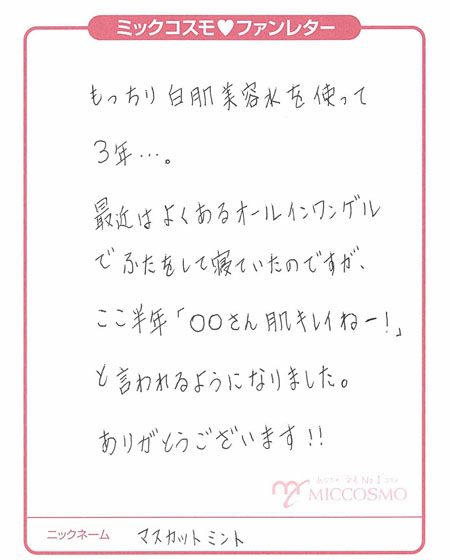 ミックコスモ♥ファンレター
もっちり白肌美容水を使って
3年…。
最近はよくあるオールインワンゲル
でふたをして寝ていたのですが、
ここ半年「〇〇さん肌キレイねー!」
と言われるようになりました。
ありがとうございます!!
MICCOSMO
ニックネーム マスカットミント